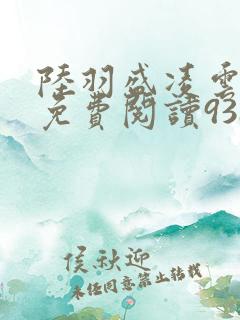 陸羽盛凌雲
免費閱讀93
侯秋迎
未经同意禁止转载